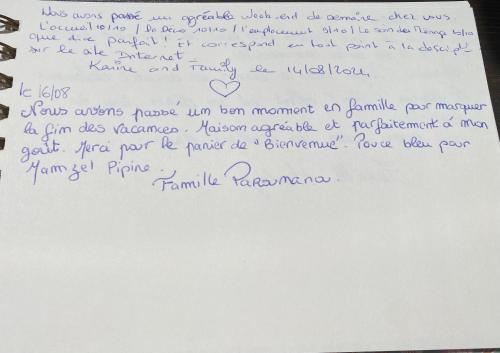 Nous avons passé un agréable week-end de semaine chez vous
L'accueil 10/10 / la Déco 10/10 / l'emplacement 5/10 / Le soin des Ménage 10/10
Que dire parfait ! Et correspond en tout point à la descipt°
sur le site Internet
Karine and Family le 14/08/2024
le 16/08
Nous avons passé un bon moment en famille pour marquer
la fin des vacances. Maison agréable et parfaitement à mon
goût. Merci pour le panier de "Bienvenue". Pouce bleu pour
Mamzel Pipine.
Famille